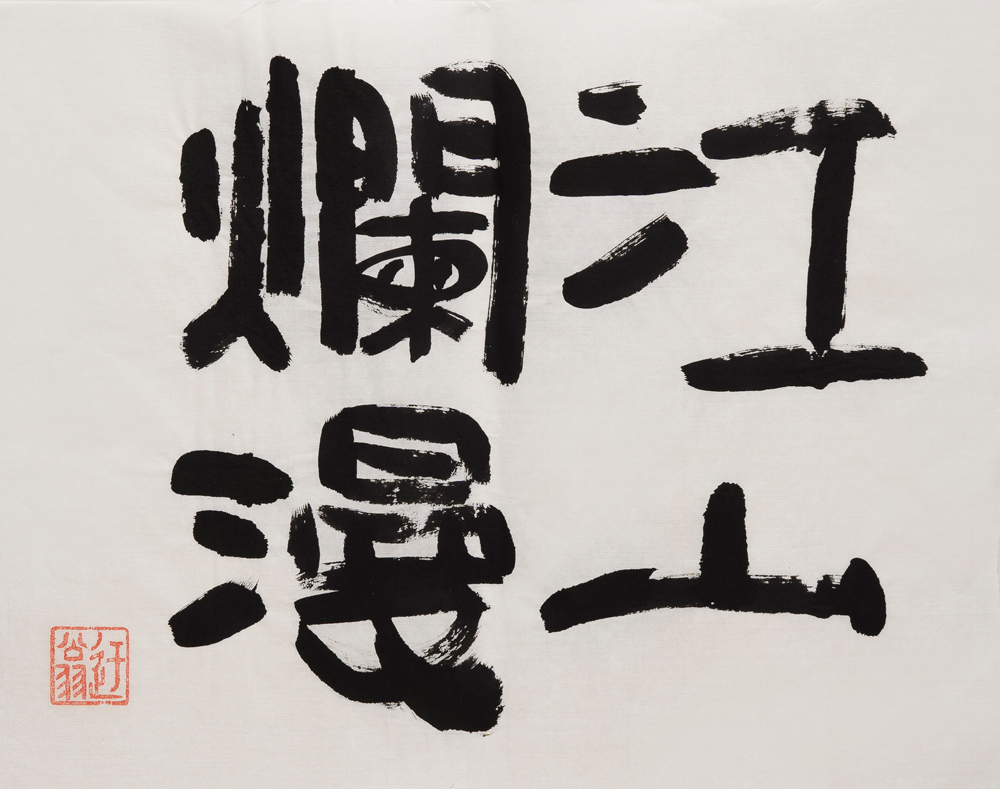 江山
爛漫
迂翁